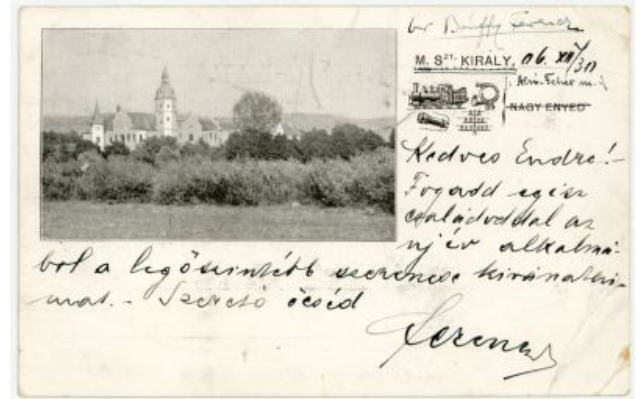 br Bánffy Ferencz
M. SZT. KIRÁLY, 06. XII/31
Alsó-Fehér m.
NAGY ENYED
Kedves Endre! -
Fogadd egész
családoddal az
új év alkalmá-
ból a legőszintébb szerencse kivánatai-
mat. - Szerető öcséd
Ferencz